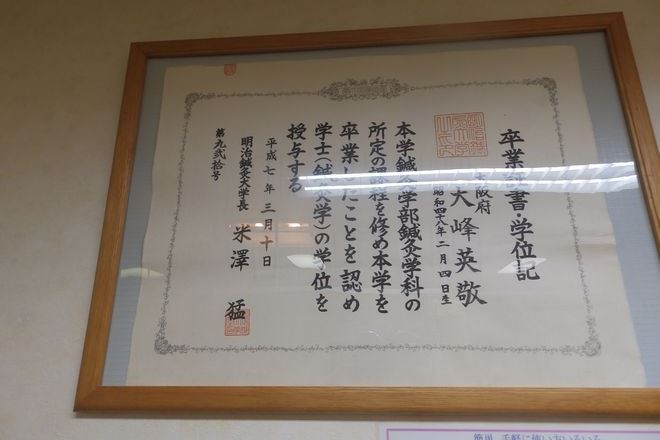 卒業証書・学位記
大阪府
大峰英敬
昭和四十八年二月四日生
本学鍼灸学部鍼灸学科の
所定の課程を修め本学を
卒業したことを認め
学士(鍼灸学)の学位を
授与する
平成七年三月十日
明治鍼灸大学長 米澤 猛
第九弐拾号